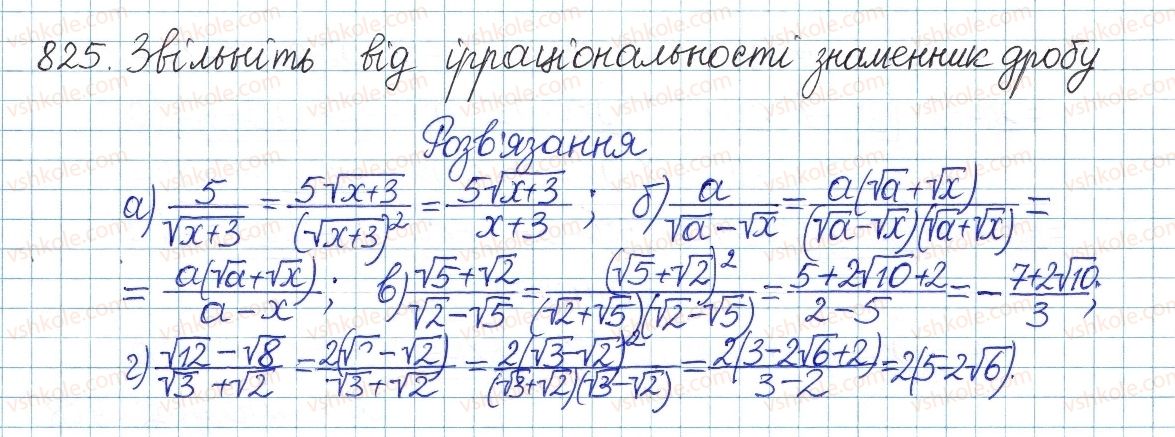 825. Звільніть від ірраціональності знаменник дробу
Розв'язання
а) 5/√(x+3) = 5√(x+3)/(√(x+3))² = 5√(x+3)/(x+3); б) a/(√a-√x) = a(√a+√x)/((√a-√x)(√a+√x)) =
= a(√a+√x)/(a-x); в) (√5+√2)/(√2-√5) = (√5+√2)²/((√2+√5)(√2-√5)) = (5+2√10+2)/(2-5) = -(7+2√10)/3;
г) (√12-√8)/(√3+√2) = 2(√ -√2)/(√3+√2) = 2(√3-√2)²/((√3+√2)(√3-√2)) = 2(3-2√6+2)/(3-2) = 2(5-2√6).